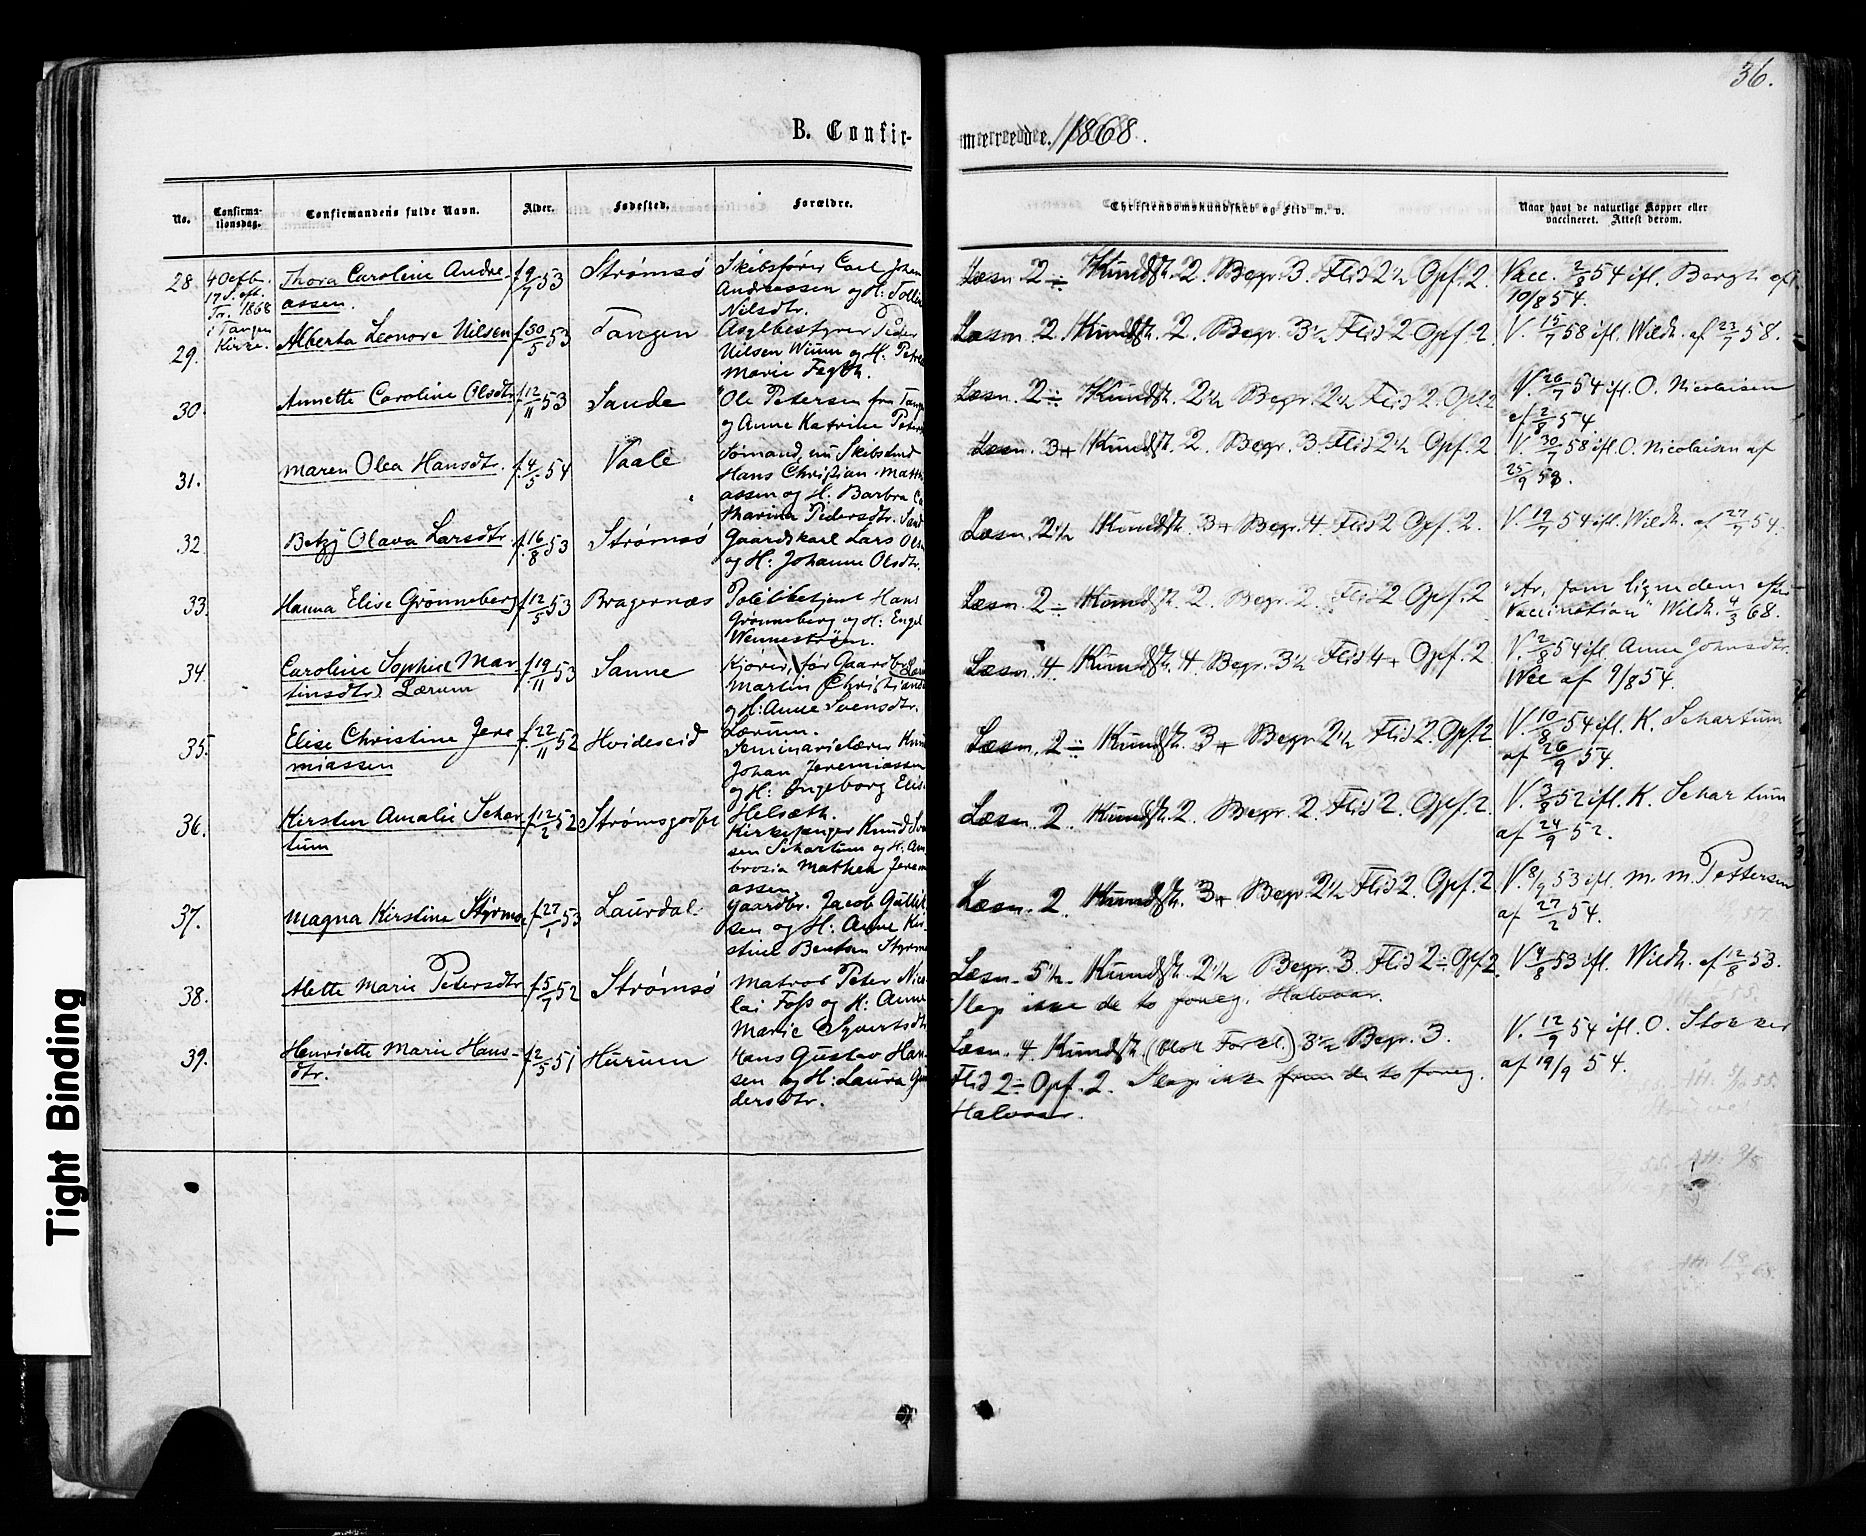 36.
B. Confirmerede. 1868.
No. Confirmationsdag. Confirmandens fulde Navn. Alder. Fødested. Forældre. Christendomskundskab og Flid m. v. Naar havt de naturlige Kopper eller vaccineret. Attest derom.
28. 4 Octbr. Thora Caroline Andre- f. 9/7 53 Strømsø Skibsfører Carl Johan Læsn. 2 ÷ Kundsk. 2. Begr. 3. Flid 2 1/2 Opf. 2. Vacc. 2/8 54 ifl. Bergh af
17 S. eft. assen. Andreassen og H: 10/8 54.
Tr. 1868 Nilsdtr.
i Tangen
Kirke.
29. Alberta Leonore Nilsen f. 30/5 53 Tangen Asylbestyrer Peder Læsn. 2. Kundsk. 2. Begr. 3 1/2 Flid 2 Opf. 2. V. 15/7 58 ifl. Wildh. af 23/7 58.
Nilsen Wium og H:
Marie
30. Annette Caroline Olsdtr. f. 12/11 53 Sande Ole Petersen fra Tange Læsn. 2 ÷ Kundsk. 2 1/2 Begr. 2 1/2 Flid 2. Opf. 2 V. 26/7 54 ifl. O. Nicolaisen
og Anne Katrine Peters af 2/8 54.
31. Maren Olea Hansdtr. f. 4/5 54 Vaale Sømand, nu Læsn. 3+ Kundsk. 2. Begr. 3. Flid 2 1/2 Opf. 2 V. 30/7 58 ifl. O. Nicolaisen af
Hans Christian Matth 25/9 58.
assen og H: Barbra Ca
tharina Pedersdtr. Sand
32. Betzy Olava Larsdtr. f. 16/8 53 Strømsø Gaardskarl Lars Ols Læsn. 2 1/2 Kundsk. 3+ Begr. 4. Flid 2 Opf. 2. V. 19/7 54 ifl. Wildh. af 27/7 54.
og H: Johanne Olsdtr.
33. Hanna Elise Grønneberg f. 12/5 53 Bragernæs Politibetjent Hans Læsn. 2 ÷ Kundsk. 2. Begr. 2. Flid 2 Opf. 2 "Ar, som ligne dem efter
Grønneberg og H: Engel Vaccination" Wildh. 4/3 68.
Wennestrøm.
34. Caroline Sophie Mar- f. 19/11 53 Sanne Kjører, før Gaardbr. Læsn. 4. Kundsk. 4. Begr. 3 1/2 Flid 4+ Opf. 2 V. 2/8 54 ifl. Anne Johnsdtr.
tinsdtr. Lærum Martin Christians af 9/8 54.
og H: Anne Svensdtr.
Lærum.
35. Elise Christine Jere f. 22/11 52 Hvideseid Seminarielærer Knud Læsn. 2 ÷ Kundsk. 3+ Begr. 2 1/2 Flid 2. Opf. 2 V. 10/8 54 ifl. K. Schartum
miassen Johan Jeremiassen af 26/9 54.
og H: Ingeborg Elis.
Helsæth.
36. Kirsten Amalie Schar f. 12/2 52 Strømsgodset Kirkesanger Knud Sve Læsn. 2. Kundsk. 2. Begr. 2. Flid 2. Opf. 2 V. 3/9 52 ifl. K. Schartum
tum sen Schartum og H: Am af 24/9 52.
brosia Mathea Jeremi
assen.
37. Magna Kirstine Styrmoe f. 27/1 53 Laurdal Gaardbr. Jacob Gullik Læsn. 2. Kundsk. 3+ Begr. 2 1/2 Flid 2. Opf. 2 V. 8/9 53 ifl. M. M. Pettersen
sen og H: Anne Kir- af 27/2 54.
stine Styrmo
38. Alette Marie Petersdtr. f. 5/7 52 Strømsø Matros Peter Nico Læsn. 5 1/2 Kundsk. 2 1/2 Begr. 3. Flid 2 ÷ Opf. 2. V. 4/8 53 ifl. Wildh. af 12/8 53.
lai Foss og H: Anne Slap ikke de to foreg. Halvaar.
Marie Syvertsdtr.
39. Henriette Marie Hans- f. 2/5 51 Hurum Hans Gustav Han- Læsn. 4. Kundsk. 3 1/2 Begr. 3. V. 12/9 54 ifl. O. Stokker
dtr. sen og H: Laura Gun Flid 2 ÷ Opf. 2. Slap ikke frem de to foreg. af 19/9 54.
dersdtr. Halvaar.
Tight Binding